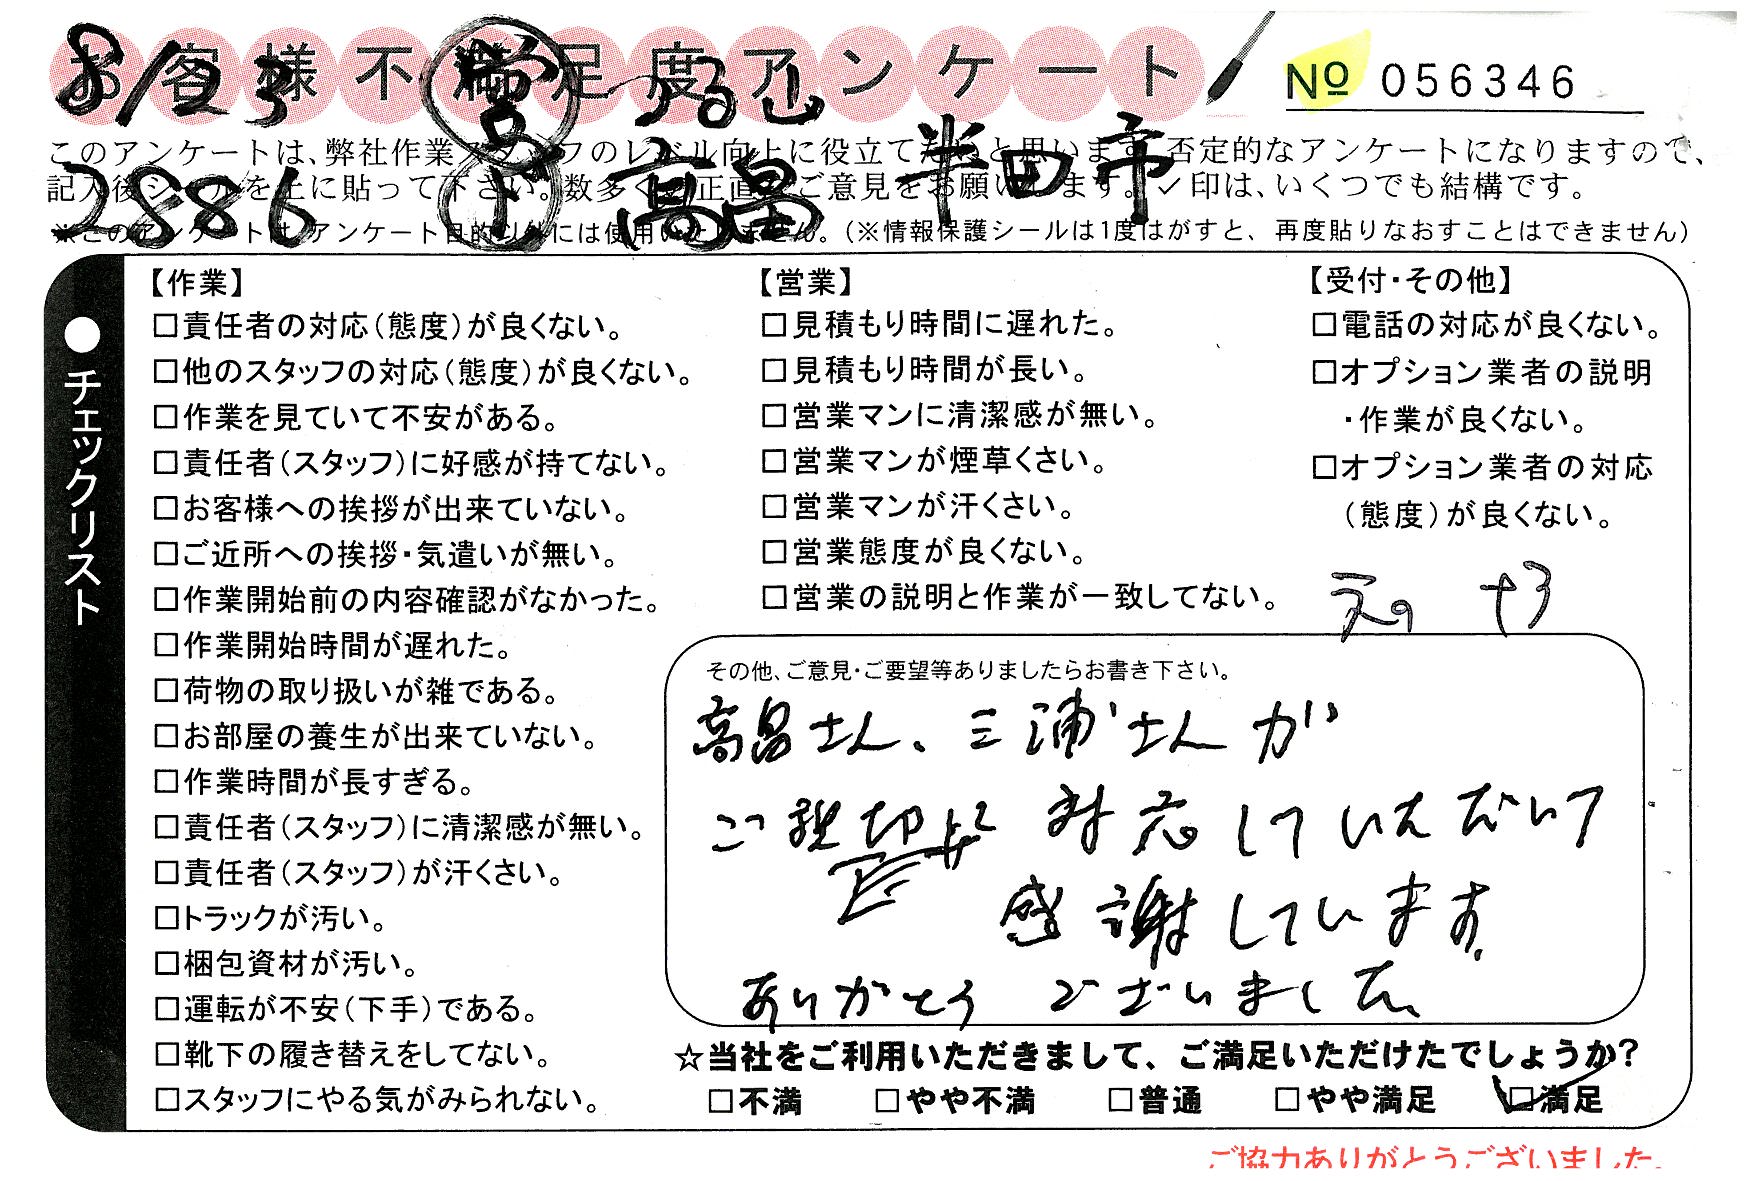 お客様不満足度アンケート
№ 056346
8/23
2886
高畠
半田市
このアンケートは、弊社作業スタッフのレベル向上に役立てたいと思います。否定的なアンケートになりますので、
記入後シールを上に貼って下さい。数多くの正直なご意見をお願いします。✓印は、いくつでも結構です。
※このアンケートは、アンケート目的以外には使用いたしません。(※情報保護シールは1度はがすと、再度貼りなおすことはできません)
●チェックリスト
【作業】
□責任者の対応(態度)が良くない。
□他のスタッフの対応(態度)が良くない。
□作業を見ていて不安がある。
□責任者(スタッフ)に好感が持てない。
□お客様への挨拶が出来ていない。
□ご近所への挨拶・気遣いが無い。
□作業開始前の内容確認がなかった。
□作業開始時間が遅れた。
□荷物の取り扱いが雑である。
□お部屋の養生が出来ていない。
□作業時間が長すぎる。
□責任者(スタッフ)に清潔感が無い。
□責任者(スタッフ)が汗くさい。
□トラックが汚い。
□梱包資材が汚い。
□運転が不安(下手)である。
□靴下の履き替えをしてない。
□スタッフにやる気がみられない。
【営業】
□見積もり時間に遅れた。
□見積もり時間が長い。
□営業マンに清潔感が無い。
□営業マンが煙草くさい。
□営業マンが汗くさい。
□営業態度が良くない。
□営業の説明と作業が一致してない。
【受付・その他】
□電話の対応が良くない。
□オプション業者の説明
・作業が良くない。
□オプション業者の対応
(態度)が良くない。
その他、ご意見・ご要望等ありましたらお書き下さい。
高畠さん、三浦さんが
ご親切に対応していただいて
感謝しています。
ありがとうございました。
☆当社をご利用いただきまして、ご満足いただけたでしょうか?
□不満 □やや不満 □普通 □やや満足 ☑満足
ご協力ありがとうございました。